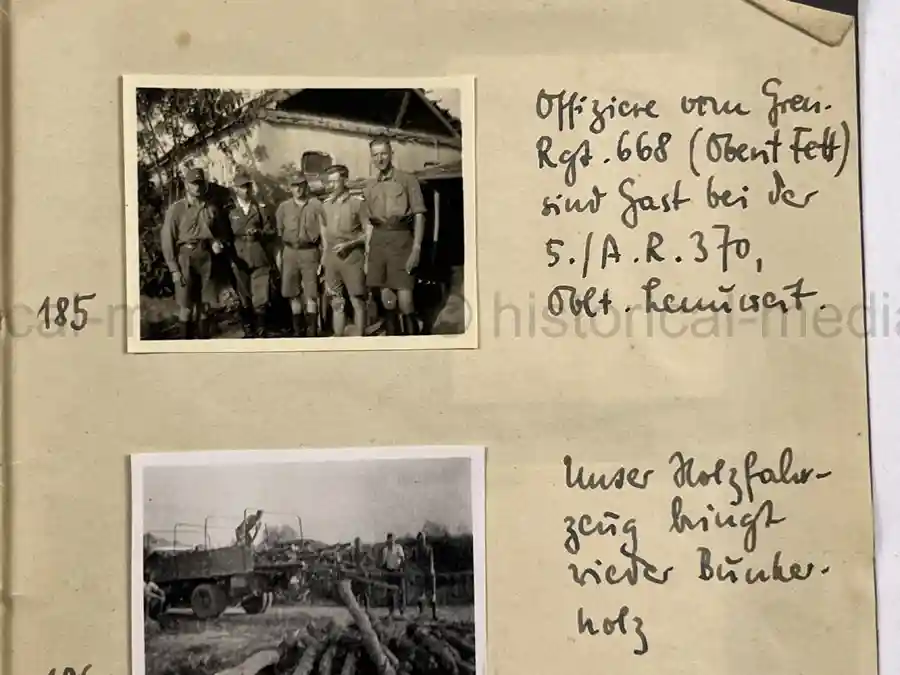 185
Offiziere vom Gren.
Rgt. 668 (Oberst Fett)
sind Gast bei der
5./A.R. 370,
Oblt.
© historical-media
Unser Holzfahr-
zeug bringt
wieder Bunker-
holz